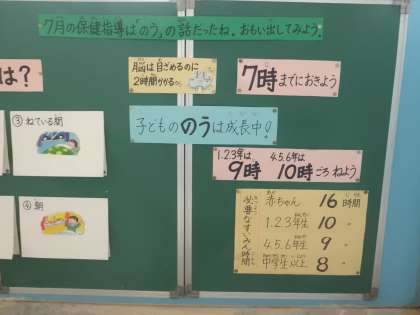 7月の保健指導は「のう」の話だったね。おもい出してみよう。
は？
脳は目ざめるのに
2時間かかる。
7時までにおきよう
子どもののうは成長中！
③ねている間
1.2.3年は 4.5.6年は
9時 10時ごろねよう
④朝
必要なすいみん時間
赤ちゃん 16時間
1.2.3年生 10 〃
4.5.6年生 9 〃
中学生以上 8 〃